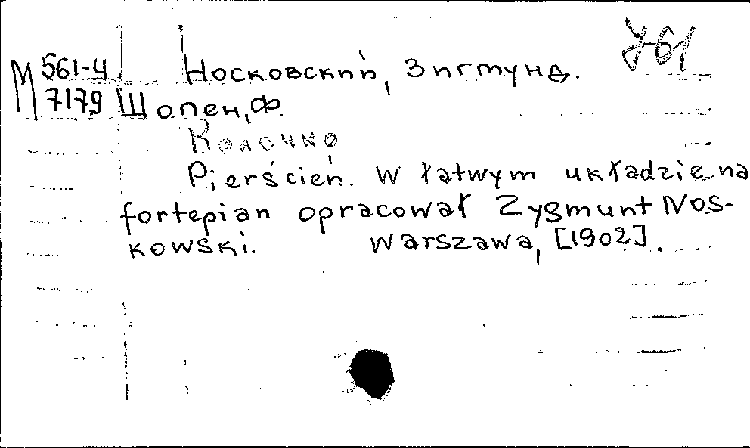 М 561-4 Носковский, Зигмунд. 761
7179 Шопен, Ф.
Колечко
Pierścień. W łatwym układzie na
fortepian opracował Zygmunt Nos-
kowski. Warszawa, [1902].